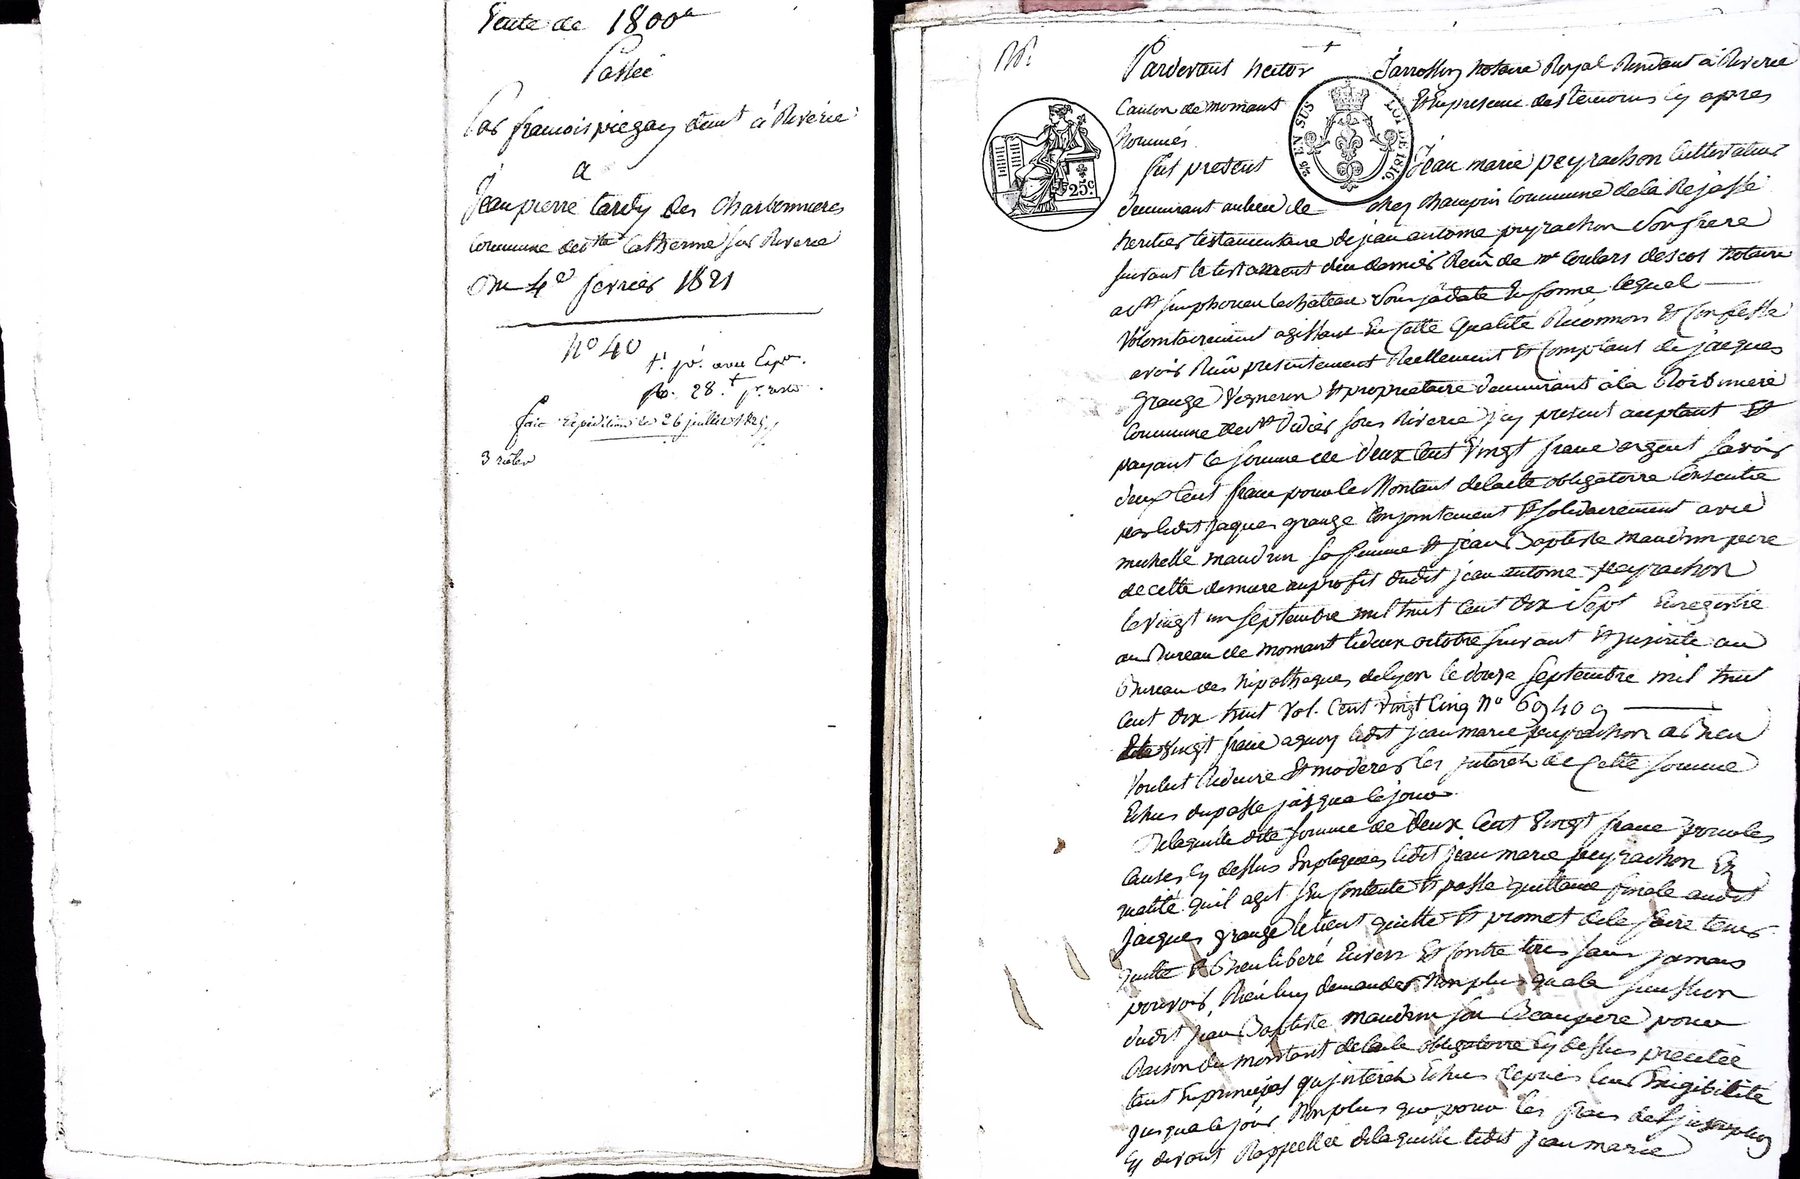 Vente de 1800 tt
Passée
Par francois piegay demt a Riverie
a
Jean pierre tardy des Charbonnieres
Commune de Ste Catherine sur Riverie
Du 4e fevrier 1821
No 40
fo. 28. t
fait expedition le 26 juillet
3 roles
Pardevant hector Jarrosson notaire Royal Residant a Riverie
Canton de mornant Et En presence des temoins Cy apres
Nommés
25c
28 EN SUS
LOI DE 1816.
fut present Jean marie peyrachon Cultivateur
demeurant au lieu de chez Champin Commune de la Rejasse
heritier testamentaire de jean antoine peyrachon Son frere
suivant le testament d'eu dernier Reçu de me Coulars descos notaire
a St Simphorien le chateau Sous Sa date En forme lequel
Volontairement agissant En Cette qualité Reconnois Et Confesse
avoir Reçu presentement Reellement Et Comptant de jacques
grange Vigneron Et proprietaire demeurant a la
Commune de St Didier Sous Riverie Jcy present acceptant Et
payant la somme de deux Cent Vingt franc argent Savoir
deux Cent franc pour le Montant de lacte obligatoire Consentie
par ledit jaques grange Conjointement Et Solidairement avec
michelle maudrin sa femme Et jean Baptiste maudrin pere
de cette derniere au profit dudit jean antoine peyrachon
le Vingt un Septembre mil huit Cent dix Sept Enregistré
au Bureau de mornant le deux octobre suivant Et jnscrite au
Bureau des hipotheques de lyon le douze Septembre mil huit
Cent dix huit Vol. Cent Vingt Cinq No 69409
Vingt franc a quoy ledit jean marie peyrachon a Bien
Voulut Reduire Et moderer les jnterets de Cette somme
Echus du passé jusqua Ce jour
De laquelle dite somme de deux Cent Vingt franc pour les
Causes Cy dessus Expliquées ledit jean marie peyrachon En
qualité quil agit Sen Contente Et passe quittance finale audit
jacques grange le tient quitte Et promet de le faire tenir
quitte Et Bien libéré Envers Et Contre tous Sans jamais
pouvoir Rien luy demander Non plus qua la Succession
dudit jean Baptiste maudrin Son Beaupere pour
Raison du montant de lacte obligatoire Cy dessus precitée
tant En principal qu'jnterets Echus depuis leur Exigibilité
jusqua Ce jour Non plus que pour les frais de l'jnscription
Cy devant Rappellée de laquelle ledit jean marie